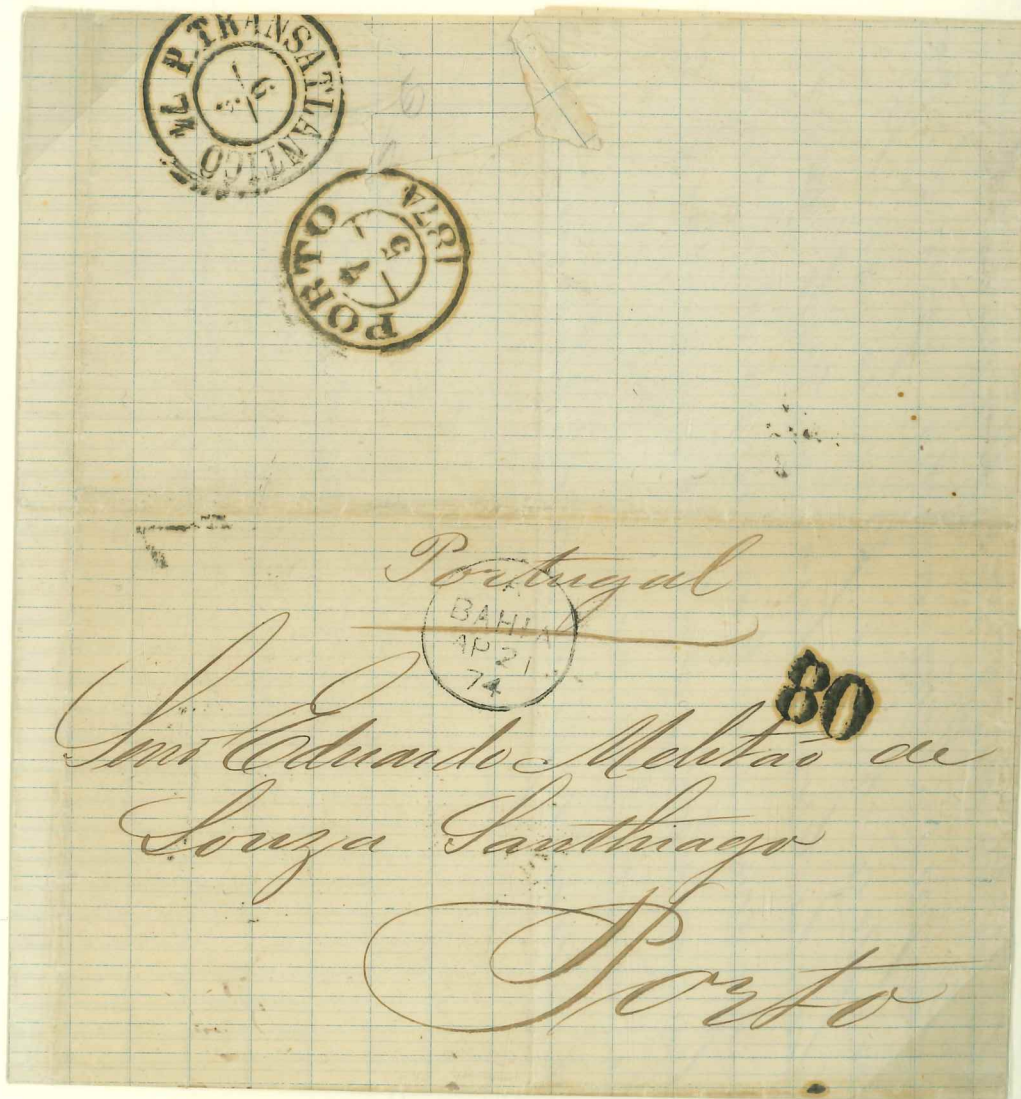 P. TRANSATLANTICO 74
5
PORTO 1874
5
Portugal
BAHIA
AP 21
74
80
Eduardo Melitão de
Souza Santhiago
Porto